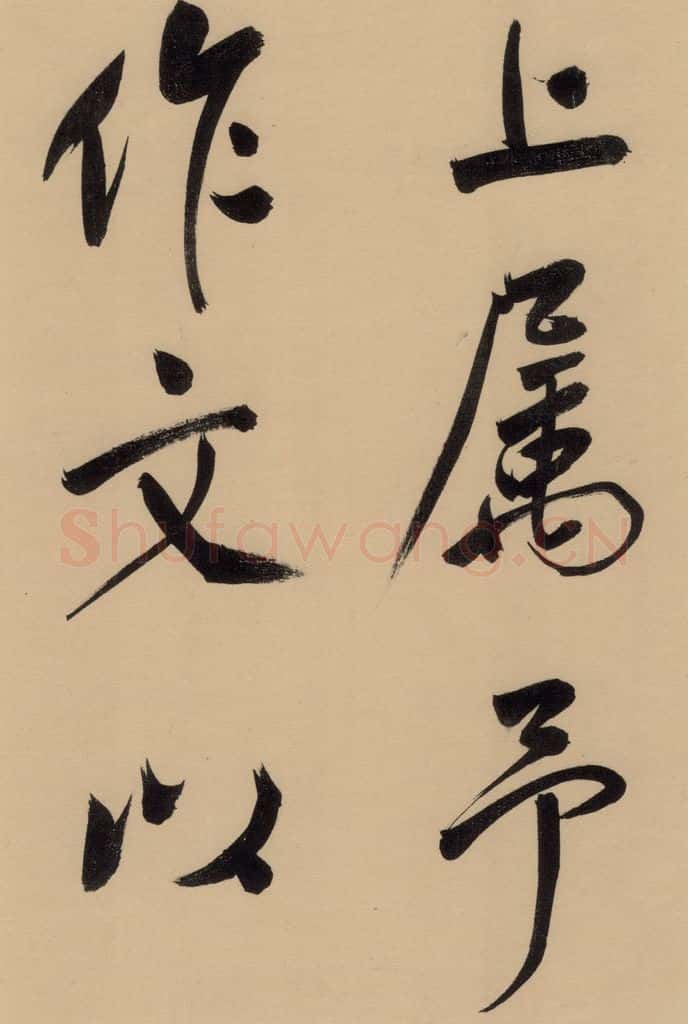 上属予
作文以
Shufawang.CN